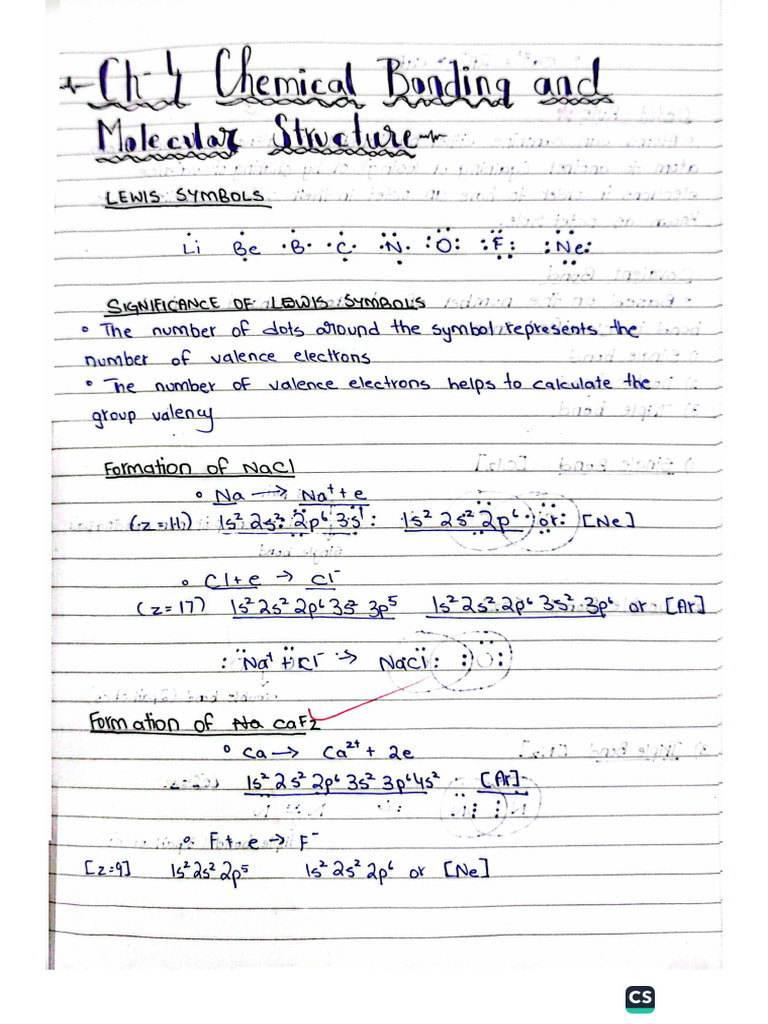 Ch-4 Chemical Bonding and
Molecular Structure
LEWIS SYMBOLS
Li Be B C N O F Ne
SIGNIFICANCE OF LEWIS SYMBOLS
• The number of dots around the symbol represents the
number of valence electrons
• The number of valence electrons helps to calculate the
group valency
Formation of NaCl
• Na → Na⁺ + e
(z=11) 1s² 2s² 2p⁶ 3s¹ 1s² 2s² 2p⁶ or [Ne]
• Cl + e → Cl⁻
(z=17) 1s² 2s² 2p⁶ 3s² 3p⁵ 1s² 2s² 2p⁶ 3s² 3p⁶ or [Ar]
Na⁺ + Cl⁻ → NaCl
Formation of CaF₂
• Ca → Ca²⁺ + 2e
1s² 2s² 2p⁶ 3s² 3p⁶ 4s² [Ar]
• F + e → F⁻
[z=9] 1s² 2s² 2p⁵ 1s² 2s² 2p⁶ or [Ne]
CS